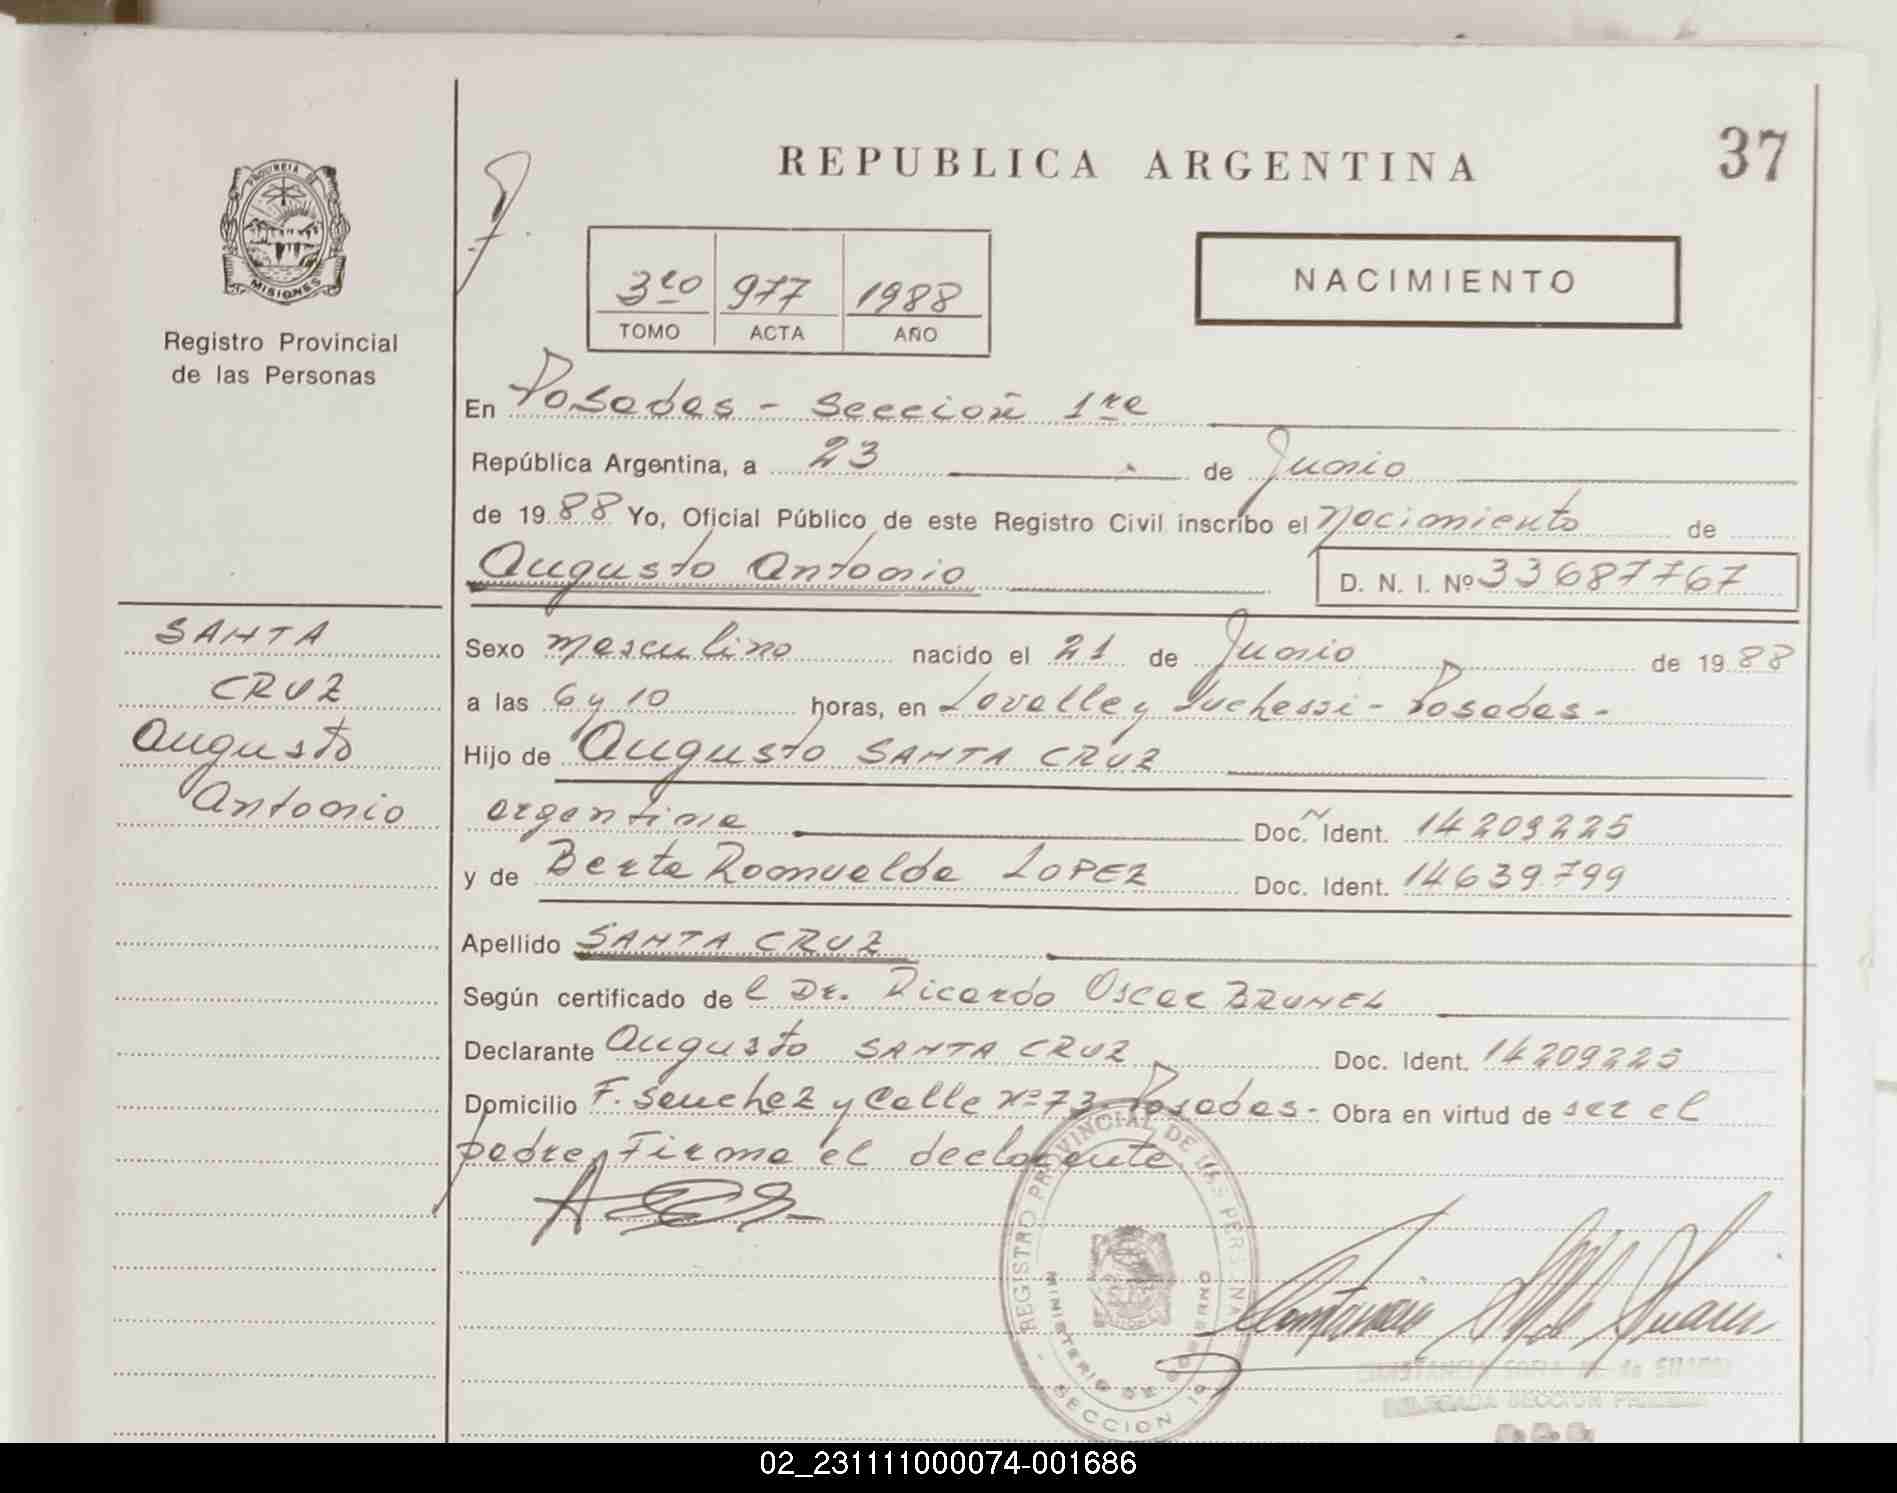 REPUBLICA ARGENTINA
37
PROVINCIA DE
MISIONES
Registro Provincial
de las Personas
3ro 977 1988
TOMO ACTA AÑO
NACIMIENTO
En Posadas - Sección 1ra
República Argentina, a 23 de Junio
de 1988 Yo, Oficial Público de este Registro Civil inscribo el Nacimiento de
Augusto Antonio
D. N. I. Nº 33687767
SANTA
CRUZ
Augusto
Antonio
Sexo Masculino nacido el 21 de Junio de 1988
a las 6 y 10 horas, en Lavalle y Luchessi - Posadas -
Hijo de Augusto SANTA CRUZ
argentina Doc. Ident. 14209225
y de Berta Romualda LOPEZ Doc. Ident. 14639799
Apellido SANTA CRUZ
Según certificado de l Dr. Ricardo Oscar BRUNEL
Declarante Augusto SANTA CRUZ Doc. Ident. 14209225
Domicilio F. Sanchez y Calle Nº 73 Posadas - Obra en virtud de ser el
padre, Firma el declarante
REGISTRO PROVINCIAL DE LAS PERSONAS
MINISTERIO DE GOBIERNO
SECCION 1ª
CONSTANCIA SOFIA M. de SUAREZ
DELEGADA SECCION PRIMERA
02_231111000074-001686